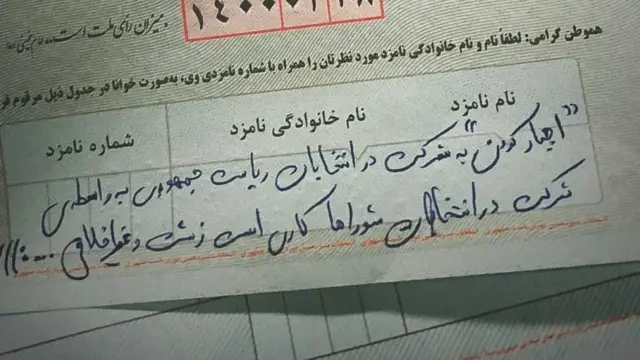 ۱۴۰۰/۰۳/۲۸
میزان رأی ملت است...
هموطن گرامی: لطفاً نام و نام خانوادگی نامزد مورد نظرتان را همراه با شماره نامزدی وی، به‌صورت خوانا در جدول ذیل مرقوم فر
نام نامزد نام خانوادگی نامزد شماره نامزد
"اجبار کردن" به شرکت در انتخابات ریاست جمهوری به واسطه‌ی
شرکت در انتخابات شوراها کاری است زشت و غیراخلاقی ...:))